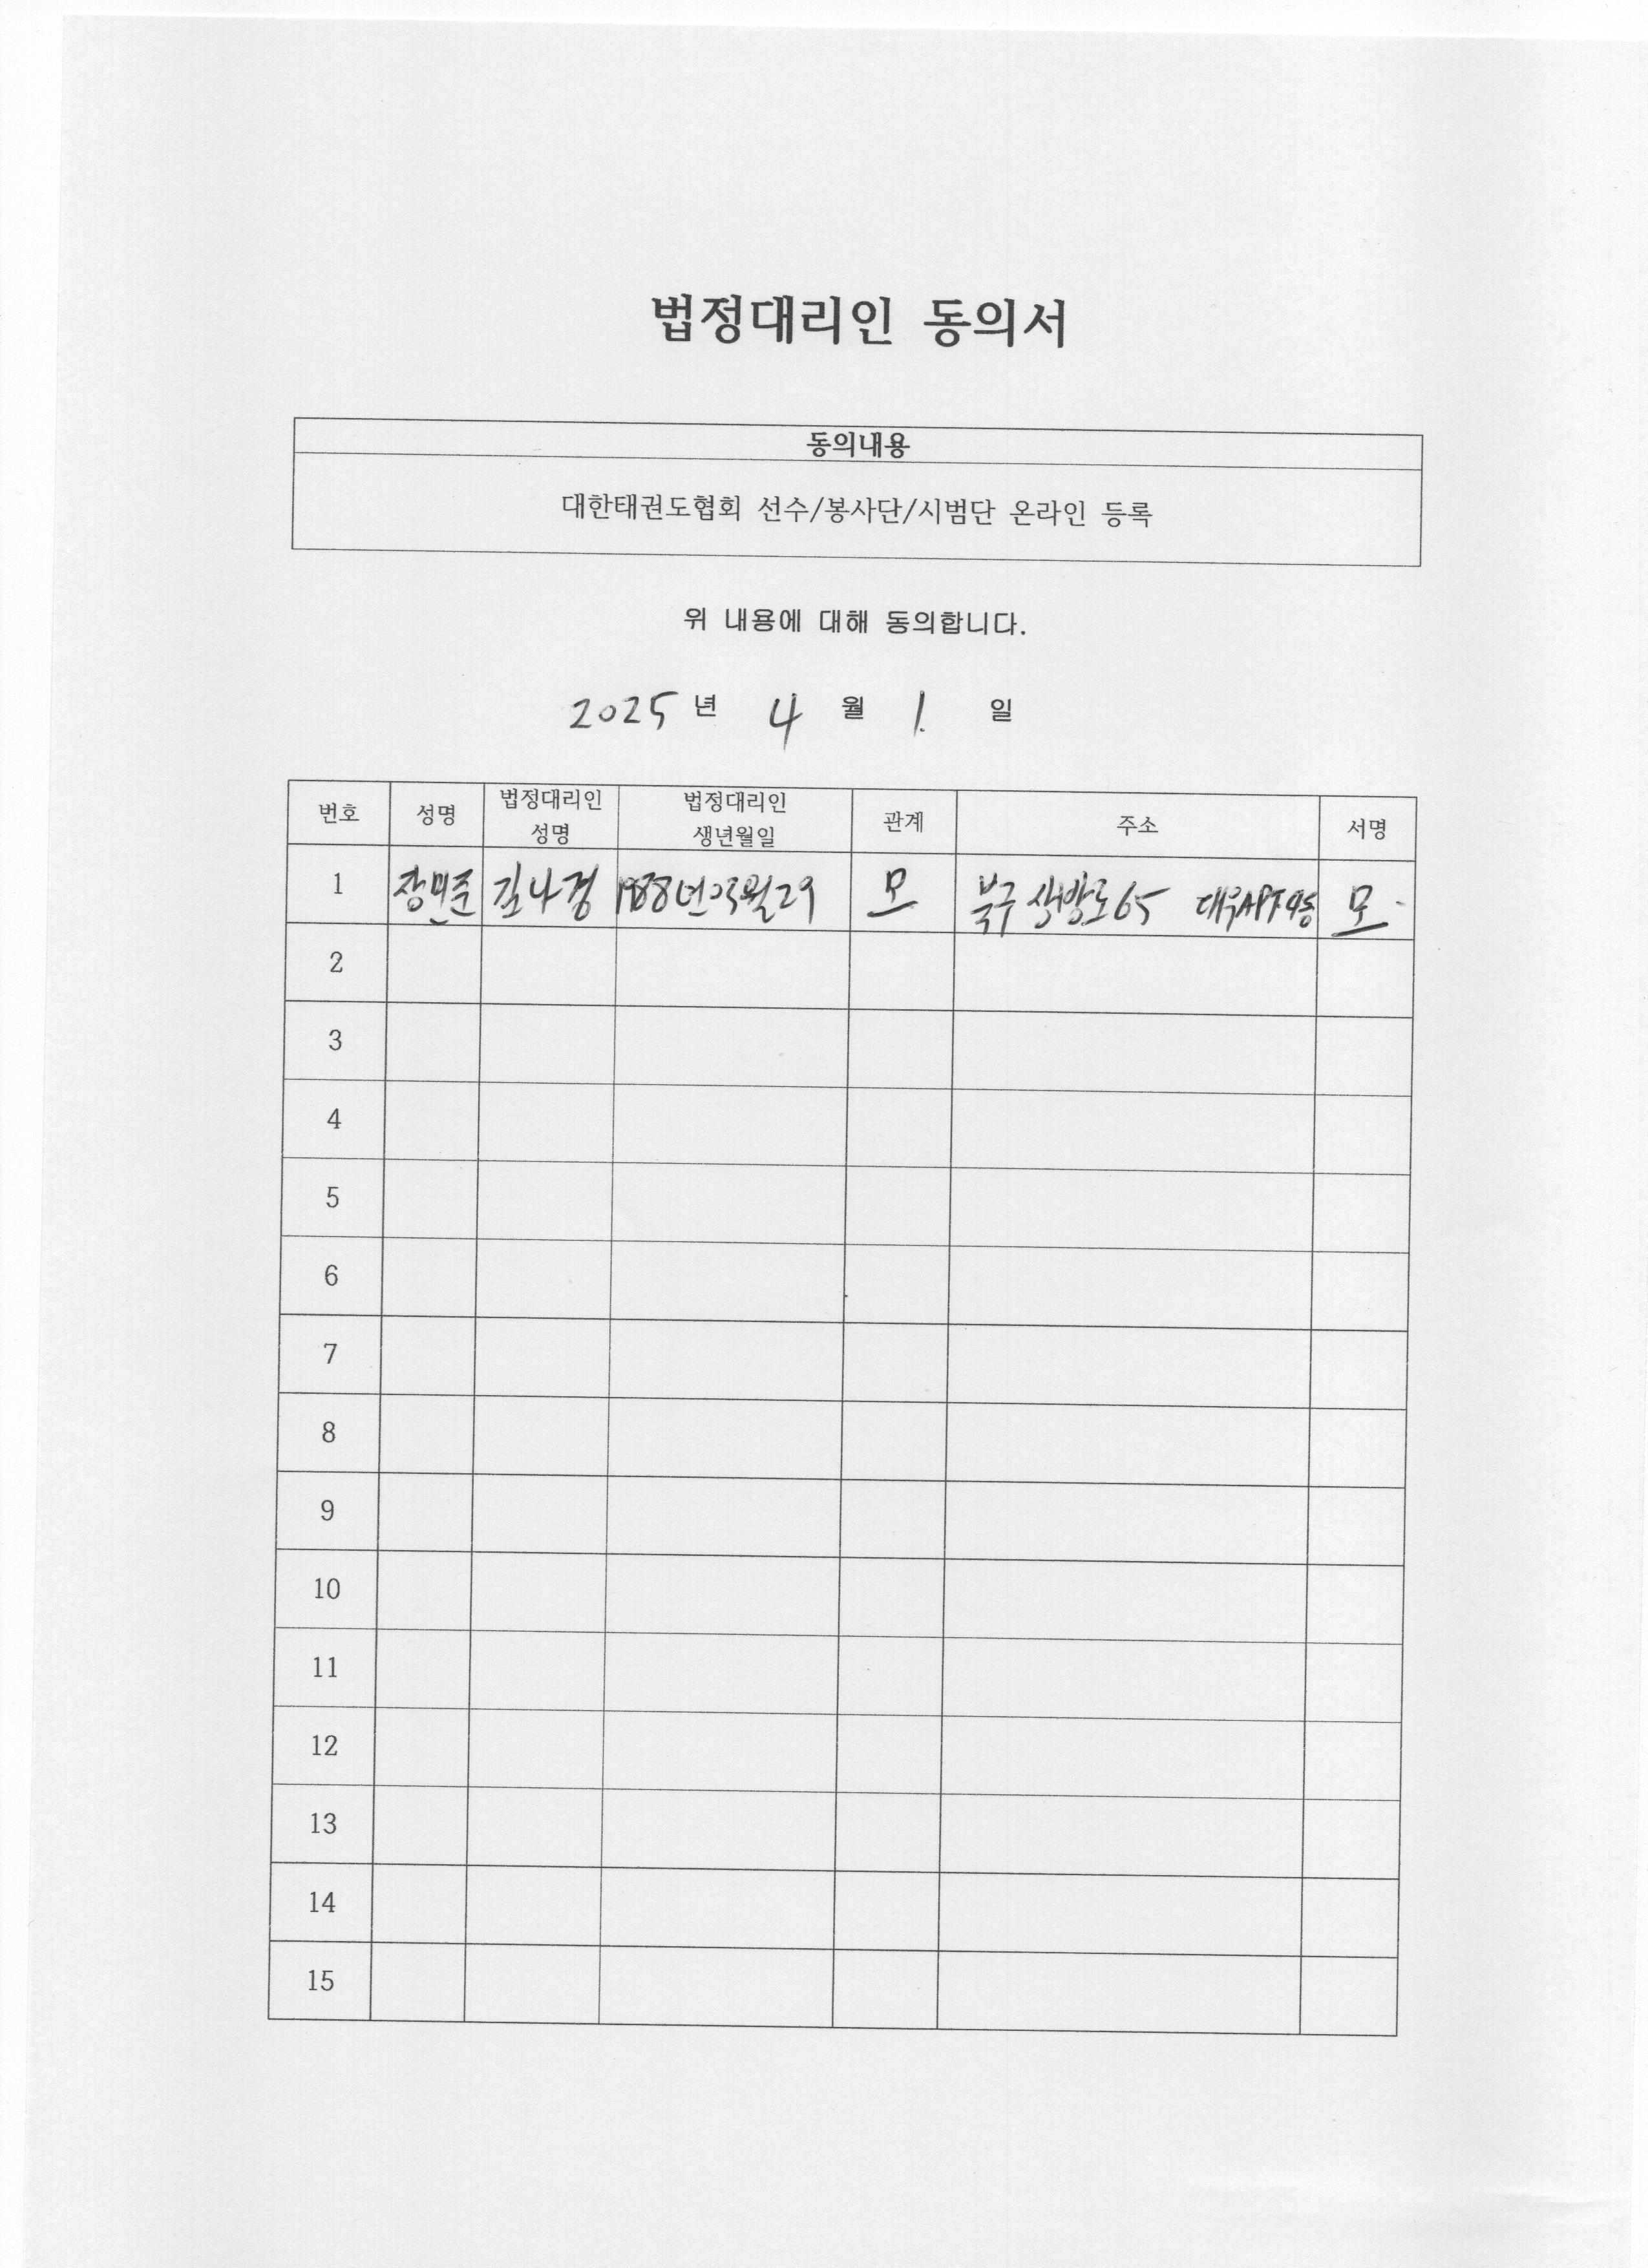 법정대리인 동의서
동의내용
대한태권도협회 선수/봉사단/시범단 온라인 등록
위 내용에 대해 동의합니다.
2025 년 4 월 1. 일
번호 성명 법정대리인 성명 법정대리인 생년월일 관계 주소 서명
1 장민준 길나경 1988년 월29 모 북구 65 대우APT 모
2
3
4
5
6
7
8
9
10
11
12
13
14
15